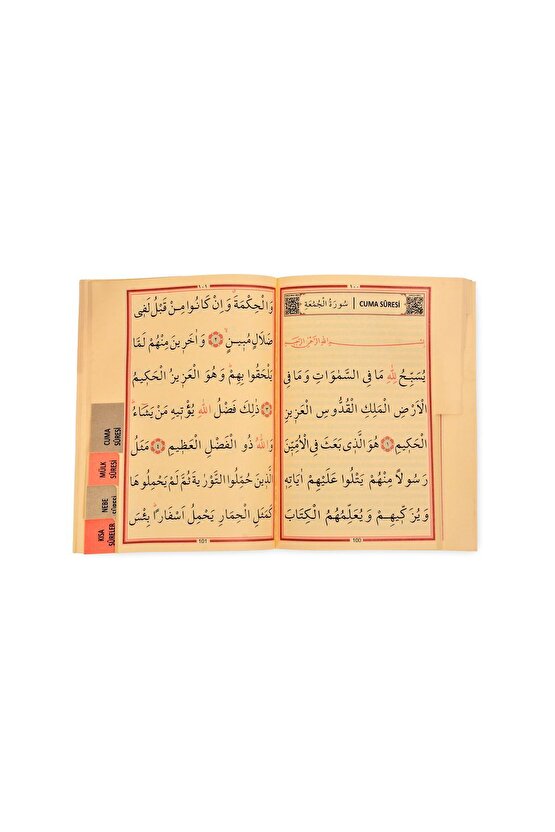 ١٠٠
سُورَةُ الْجُمُعَةِ | CUMA SÛRESİ
بِسْمِ اللّٰهِ الرَّحْمٰنِ الرَّحِيمِ
يُسَبِّحُ لِلّٰهِ مَا فِى السَّمٰوَاتِ وَمَا فِى
الْاَرْضِ الْمَلِكِ الْقُدُّوسِ الْعَزِيزِ
الْحَكِيمِ ﴿١﴾ هُوَ الَّذِى بَعَثَ فِى الْاُمِّيّ۪نَ
رَسُولًا مِنْهُمْ يَتْلُوا عَلَيْهِمْ اٰيَاتِهِ
وَيُزَكّ۪يهِمْ وَيُعَلِّمُهُمُ الْكِتَابَ
100
١٠١
وَالْحِكْمَةَ وَاِنْ كَانُوا مِنْ قَبْلُ لَفِى
ضَلَالٍ مُبِينٍ ﴿٢﴾ وَاٰخَرِينَ مِنْهُمْ لَمَّا
يَلْحَقُوا بِهِمْ وَهُوَ الْعَزِيزُ الْحَكِيمُ
﴿٣﴾ ذٰلِكَ فَضْلُ اللّٰهِ يُؤْت۪يهِ مَنْ يَشَاءُ
وَاللّٰهُ ذُو الْفَضْلِ الْعَظِيمِ ﴿٤﴾ مَثَلُ
الَّذِينَ حُمِّلُوا التَّوْرٰيةَ ثُمَّ لَمْ يَحْمِلُوهَا
كَمَثَلِ الْحِمَارِ يَحْمِلُ اَسْفَارًا بِئْسَ
101
CUMA
SÛRESİ
MÜLK
SÛRESİ
NEBE
KISA
SÛRELER